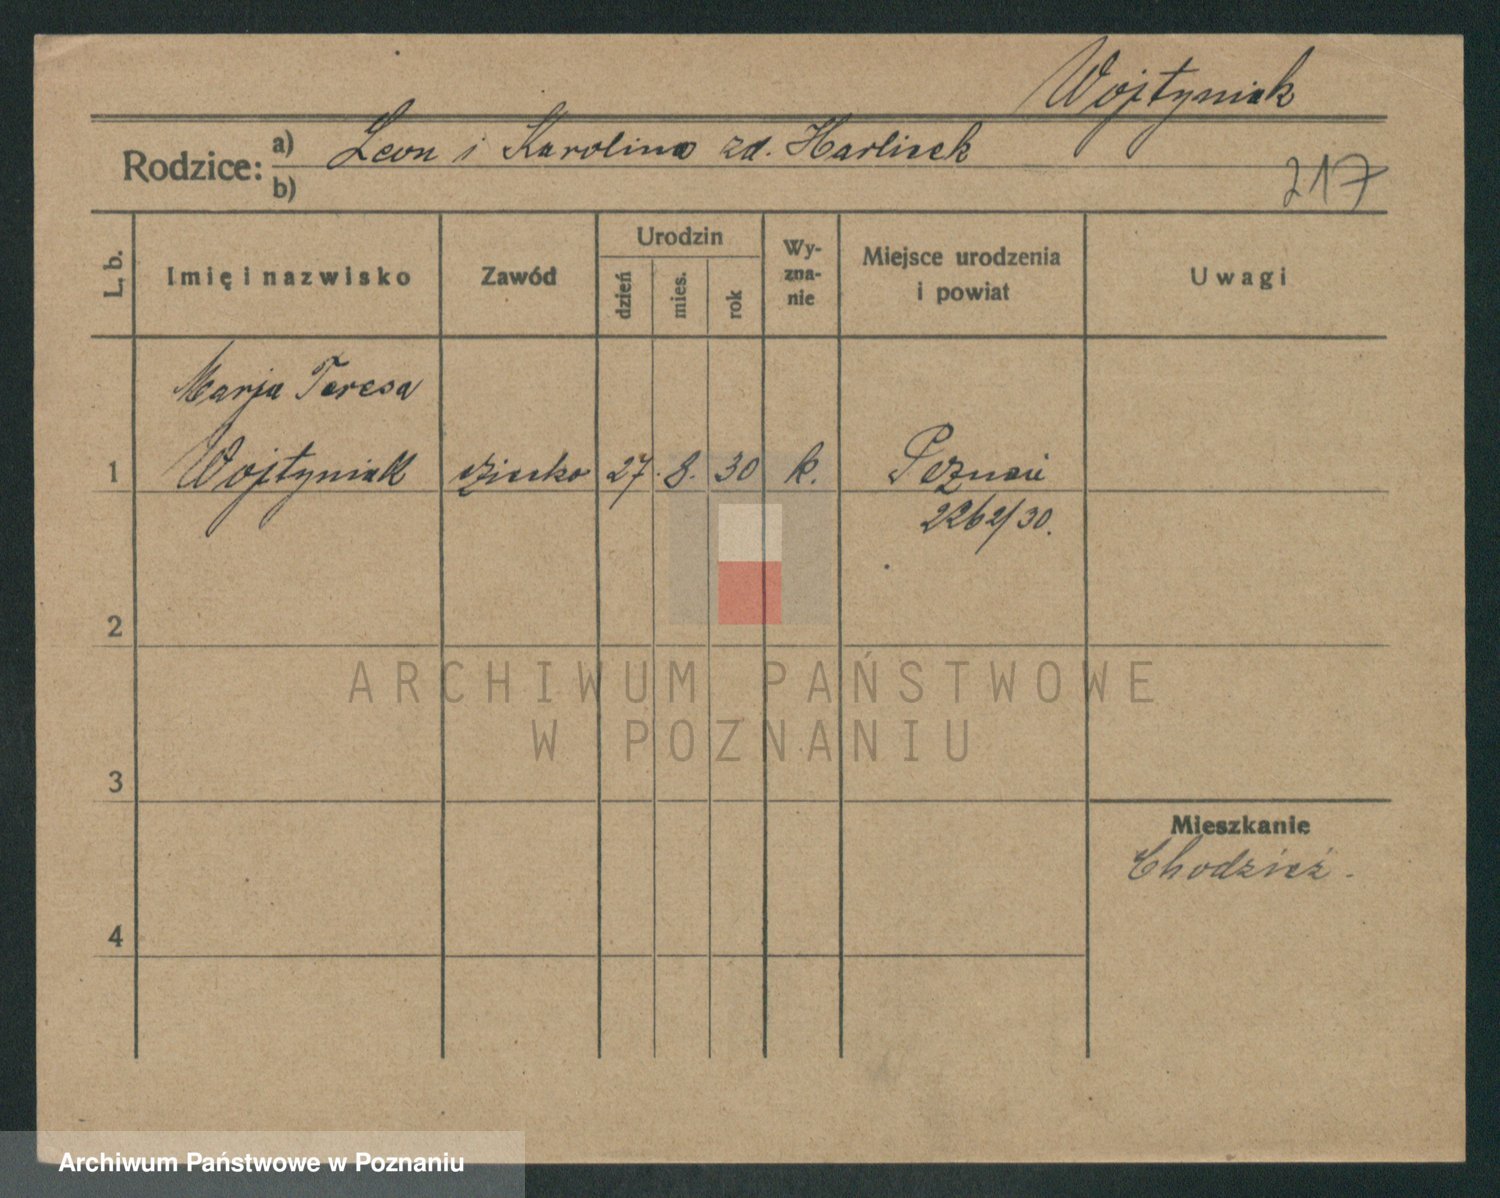 Wojtyniak
Rodzice: a) Leon i Karolina zd. Harlicek
b)
217
L. b. Imię i nazwisko Zawód Urodzin dzień mies. rok Wy-zna-nie Miejsce urodzenia i powiat Uwagi
Marja Teresa
1 Wojtyniak dziecko 27. 8. 30 k. Poznań
2262/30.
2
ARCHIWUM PAŃSTWOWE
W POZNANIU
3
Mieszkanie
Chodzież.
4
Archiwum Państwowe w Poznaniu